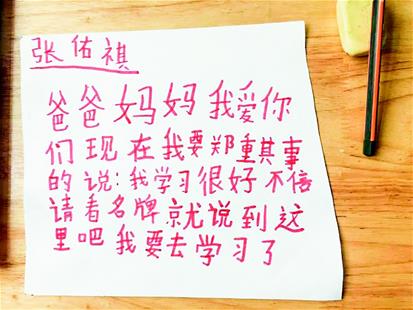 张佑祺
爸爸妈妈我爱你
们现在我要郑重其事
的说:我学习很好不信
请看名牌就说到这
里吧我要去学习了